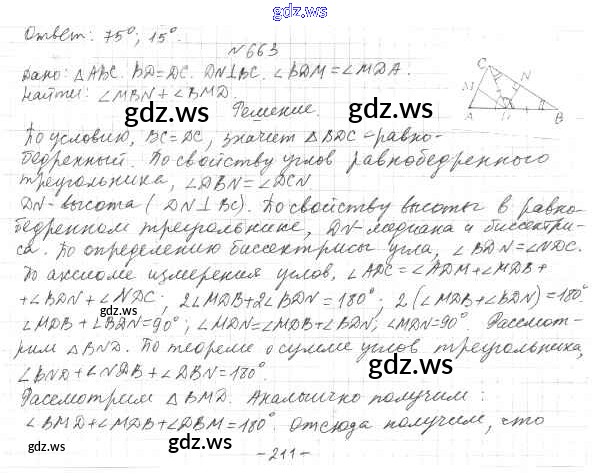 gdz.ws
Ответ: 75°; 15°.
№663
Дано: △ABC. BD=DC. DN⊥BC. ∠BDM=∠MDA.
Найти: ∠MBN+∠BMD.
gdz.ws
gdz.ws
Решение.
C
M
N
A
D
B
По условию, BC=DC, значит △BDC-равно-
бедренный. По свойству углов равнобедренного
треугольника, ∠DBN=∠DCN
DN-высота (DN⊥BC). По свойству высоты в равно-
бедренном треугольнике, DN-медиана и биссектри-
са. По определению биссектрисы угла, ∠BDN=∠NDC.
По аксиоме измерения углов, ∠ADC=∠ADM+∠MDB+
+∠BDN+∠NDC; 2∠MDB+2∠BDN=180°; 2(∠MDB+∠BDN)=180°
∠MDB+∠BDN=90°; ∠MDN=∠MDB+∠BDN; ∠MDN=90°. Рассмот-
рим △BND. По теореме о сумме углов треугольника,
∠BND+∠NDB+∠DBN=180°.
gdz.ws
Рассмотрим △BMD. Аналогично получим:
∠BMD+∠MDB+∠DBM=180°. Отсюда получим, что
gdz.ws
gdz.ws
-211-